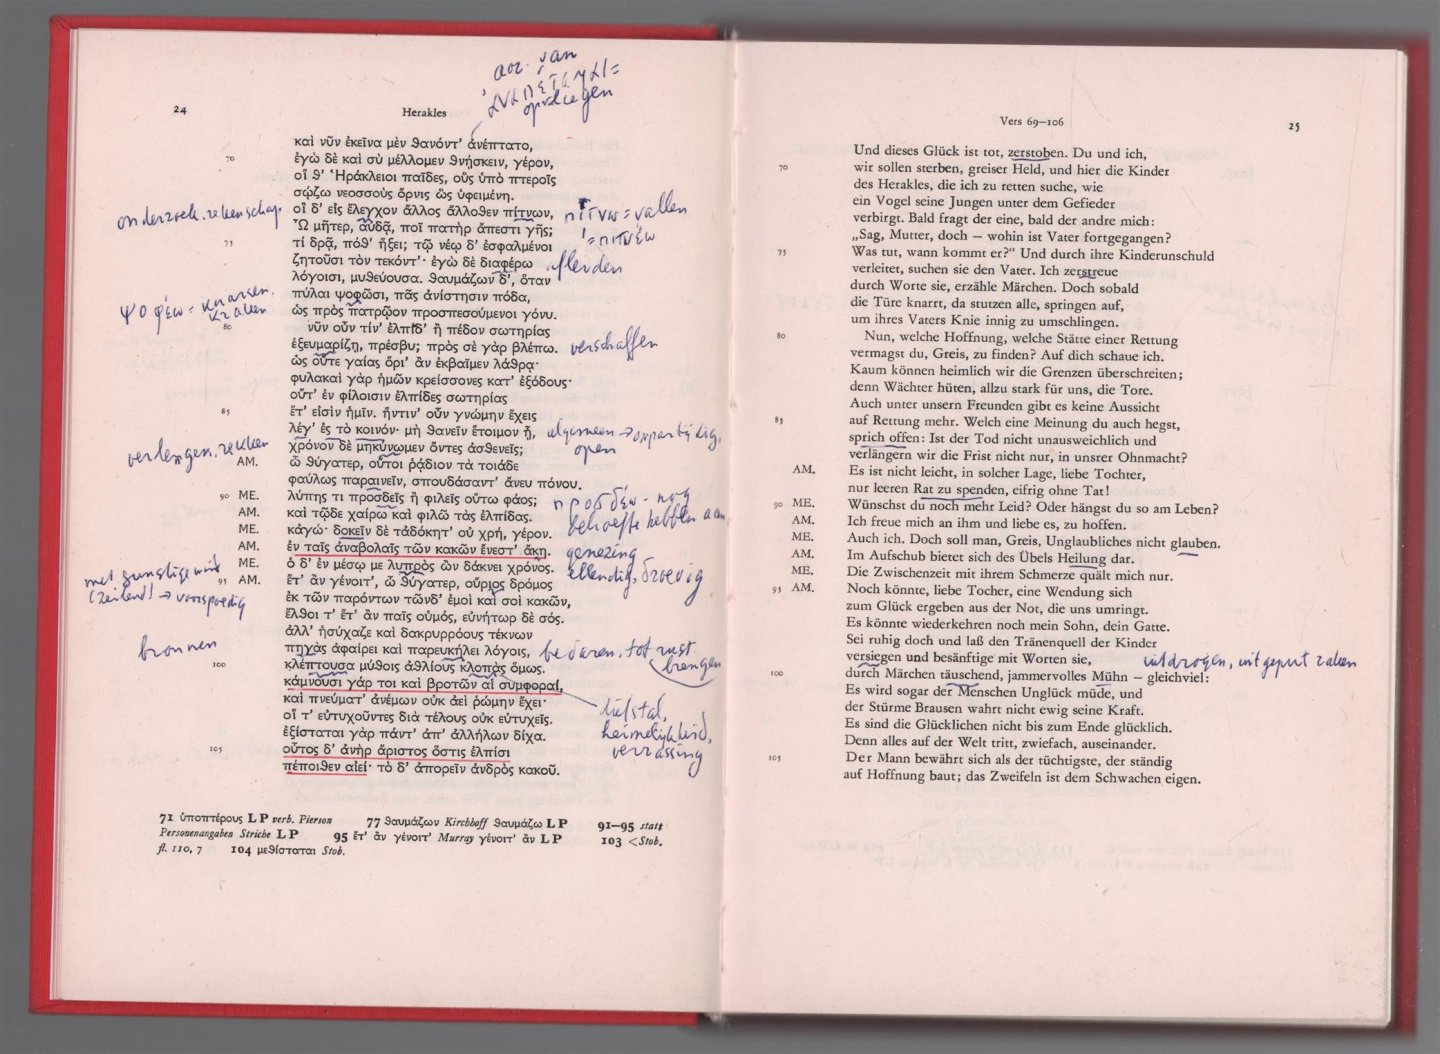 aor. van
ἀναπεταμαι =
opvliegen
24
Herakles
καὶ νῦν ἐκεῖνα μὲν θανόντ' ἀνέπτατο,
70 ἐγὼ δὲ καὶ σὺ μέλλομεν θνήσκειν, γέρον,
οἵ θ' Ἡράκλειοι παῖδες, οὓς ὑπὸ πτεροῖς
σῴζω νεοσσοὺς ὄρνις ὣς ὑφειμένη.
onderzoek. rekenschap
οἳ δ' εἰς ἔλεγχον ἄλλος ἄλλοθεν πίτνων,
πίτνω = vallen
Ὦ μῆτερ, αὐδᾷ, ποῖ πατὴρ ἄπεστι γῆς;
= πιτνέω
75 τί δρᾷ, πόθ' ἥξει; τῷ νέῳ δ' ἐσφαλμένοι
ζητοῦσι τὸν τεκόντ'· ἐγὼ δὲ διαφέρω
afleiden
λόγοισι, μυθεύουσα. θαυμάζων δ', ὅταν
ψοφέω - knarsen.
kraken
πύλαι ψοφῶσι, πᾶς ἀνίστησιν πόδα,
ὡς πρὸς πατρῷον προσπεσούμενοι γόνυ.
80 νῦν οὖν τίν' ἐλπίδ' ἢ πέδον σωτηρίας
ἐξευμαρίζῃ, πρέσβυ; πρὸς σὲ γὰρ βλέπω.
verschaffen
ὡς οὔτε γαίας ὅρι' ἂν ἐκβαῖμεν λάθρᾳ·
φυλακαὶ γὰρ ἡμῶν κρείσσονες κατ' ἐξόδους·
οὔτ' ἐν φίλοισιν ἐλπίδες σωτηρίας
85 ἔτ' εἰσὶν ἡμῖν. ἥντιν' οὖν γνώμην ἔχεις
λέγ' ἐς τὸ κοινόν· μὴ θανεῖν ἕτοιμον ᾖ,
algemeen → onpartijdig,
open
verlengen. rekken
χρόνον δὲ μηκύνωμεν ὄντες ἀσθενεῖς;
AM. ὦ θύγατερ, οὔτοι ῥᾴδιον τὰ τοιάδε
φαύλως παραινεῖν, σπουδάσαντ' ἄνευ πόνου.
90 ME. λύπης τι προσδεῖς ἢ φιλεῖς οὕτω φάος;
προσδέω - nog
AM. καὶ τῷδε χαίρω καὶ φιλῶ τὰς ἐλπίδας.
behoefte hebben aan
ME. κἀγώ· δοκεῖν δὲ τἀδόκητ' οὐ χρή, γέρον.
AM. ἐν ταῖς ἀναβολαῖς τῶν κακῶν ἔνεστ' ἄκη.
genezing
ME. ὁ δ' ἐν μέσῳ με λυπρὸς ὢν δάκνει χρόνος.
ellendig, droevig
met gunstige wind
(zeilend) → voorspoedig
95 AM. ἔτ' ἂν γένοιτ', ὦ θύγατερ, οὔριος δρόμος
ἐκ τῶν παρόντων τῶνδ' ἐμοὶ καὶ σοὶ κακῶν,
ἔλθοι τ' ἔτ' ἂν παῖς οὑμός, εὐνήτωρ δὲ σός.
bronnen
ἀλλ' ἡσύχαζε καὶ δακρυρρόους τέκνων
πηγὰς ἀφαίρει καὶ παρευκήλει λόγοις,
bedaren, tot rust
brengen
100 κλέπτουσα μύθοις ἀθλίους κλοπὰς ὅμως.
κάμνουσι γάρ τοι καὶ βροτῶν αἱ συμφοραί,
καὶ πνεύματ' ἀνέμων οὐκ ἀεὶ ῥώμην ἔχει·
diefstal,
οἵ τ' εὐτυχοῦντες διὰ τέλους οὐκ εὐτυχεῖς.
heimelijkheid,
ἐξίσταται γὰρ πάντ' ἀπ' ἀλλήλων δίχα.
verrassing
105 οὗτος δ' ἀνὴρ ἄριστος ὅστις ἐλπίσι
πέποιθεν αἰεί· τὸ δ' ἀπορεῖν ἀνδρὸς κακοῦ.
71 ὑποπτέρους LP verb. Pierson 77 θαυμάζων Kirchhoff θαυμάζω LP 91—95 statt
Personenangaben Striche LP 95 ἔτ' ἂν γένοιτ' Murray γένοιτ' ἂν LP 103 <Stob.
fl. 110, 7 104 μεθίσταται Stob.
Vers 69—106
25
Und dieses Glück ist tot, zerstoben. Du und ich,
70 wir sollen sterben, greiser Held, und hier die Kinder
des Herakles, die ich zu retten suche, wie
ein Vogel seine Jungen unter dem Gefieder
verbirgt. Bald fragt der eine, bald der andre mich:
„Sag, Mutter, doch — wohin ist Vater fortgegangen?
75 Was tut, wann kommt er?“ Und durch ihre Kinderunschuld
verleitet, suchen sie den Vater. Ich zerstreue
durch Worte sie, erzähle Märchen. Doch sobald
die Türe knarrt, da stutzen alle, springen auf,
um ihres Vaters Knie innig zu umschlingen.
80 Nun, welche Hoffnung, welche Stätte einer Rettung
vermagst du, Greis, zu finden? Auf dich schaue ich.
Kaum können heimlich wir die Grenzen überschreiten;
denn Wächter hüten, allzu stark für uns, die Tore.
Auch unter unsern Freunden gibt es keine Aussicht
85 auf Rettung mehr. Welch eine Meinung du auch hegst,
sprich offen: Ist der Tod nicht unausweichlich und
verlängern wir die Frist nicht nur, in unsrer Ohnmacht?
AM. Es ist nicht leicht, in solcher Lage, liebe Tochter,
nur leeren Rat zu spenden, eifrig ohne Tat!
90 ME. Wünschst du noch mehr Leid? Oder hängst du so am Leben?
AM. Ich freue mich an ihm und liebe es, zu hoffen.
ME. Auch ich. Doch soll man, Greis, Unglaubliches nicht glauben.
AM. Im Aufschub bietet sich des Übels Heilung dar.
ME. Die Zwischenzeit mit ihrem Schmerze quält mich nur.
95 AM. Noch könnte, liebe Tocher, eine Wendung sich
zum Glück ergeben aus der Not, die uns umringt.
Es könnte wiederkehren noch mein Sohn, dein Gatte.
Sei ruhig doch und laß den Tränenquell der Kinder
versiegen und besänftige mit Worten sie,
uitdrogen, uitgeput raken
100 durch Märchen täuschend, jammervolles Mühn — gleichviel:
Es wird sogar der Menschen Unglück müde, und
der Stürme Brausen wahrt nicht ewig seine Kraft.
Es sind die Glücklichen nicht bis zum Ende glücklich.
Denn alles auf der Welt tritt, zwiefach, auseinander.
105 Der Mann bewährt sich als der tüchtigste, der ständig
auf Hoffnung baut; das Zweifeln ist dem Schwachen eigen.